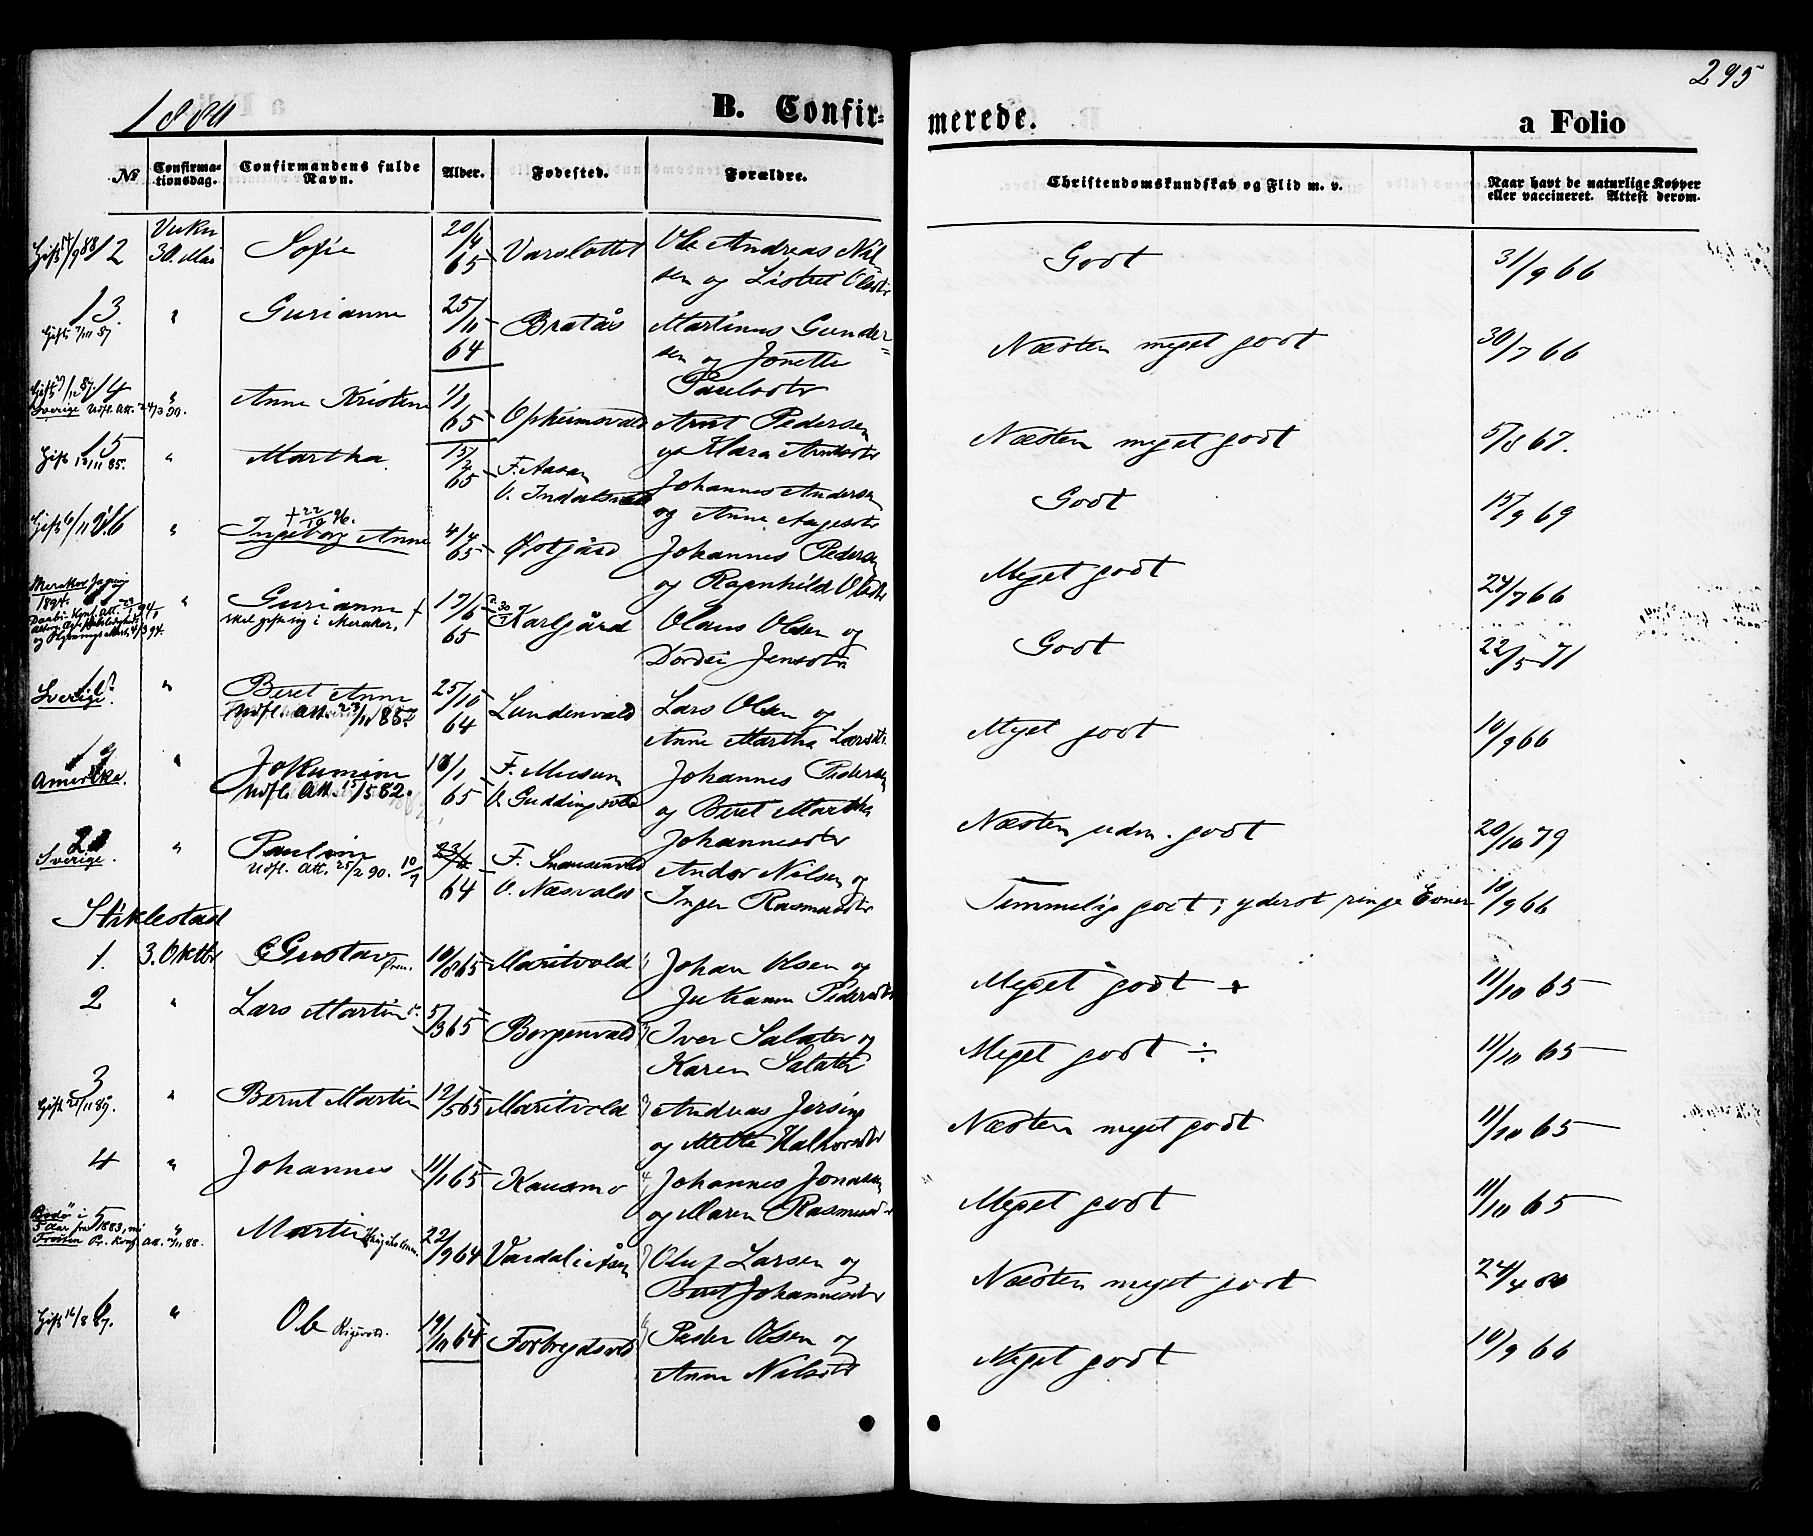 295
1880
B. Confir=
merede.
a Folio
No
Confirma-
tionsdag.
Confirmandens fulde
Navn.
Alder.
Fødested.
Forældre.
Christendomskundskab og Flid m. v.
Naar havt de naturlige Kopper
eller vaccineret. Attest derom.
12 30. Mai Sofie 20/4 65 Varslottet Ole Andreas Nil-
sen og Olsdtr
Godt 31/9 66
13. " Gurianne 25/11 64 Bratås Martinus Gunder=
sen og Jonetta
Paulsdtr
Gift 7/11 87
Næsten meget godt 30/7 66
14 " Anne Kristine 1/1 65 Opheimsvald Arnt Pedersen
og Klara Arntsdtr
Sverige Udfl. Att. 24/3 90.
Næsten meget godt 5/8 67.
15 " Martha 15/2 65 F. Aasen
O. Indalsvald
Johannes Andersen
og Anne Aagesdtr
Gift 13/11 85.
Godt 15/9 69
16 " Ingeborg Anne 4/4 65 Østgård Johannes Pedersen
og Ragnhild Olsdtr
+ 22/10 96.
Meget godt 24/7 66
" Gurianne + 17/6 65 Karlgård Olaus Olsen og
Dordei Jensdtr
skal gifte sig i Meraker,
1894.
Godt 22/5 71
18 " Beret Anne 25/10 64 Lundenvald Lars Olsen og
Anne Martha Larsdtr
Sverige. Udfl. Att. 23/11 1887
Meget godt 10/9 66
19 " Jokumine 18/1 65 F. Musum
O. Guddingsvald
Johannes Pedersen
og Beret Martha
Johannesdtr
Amerika. Udfl. Att. 15/5 82.
Næsten udm. godt 20/10 79
20 " Pauline 10/9 64 F. Snausenvald
O. Næsvald
Andor Nilsen og
Inger Rasmusdtr
Sverige. Udfl. Att. 25/2 90.
Temmelig godt; yderst ringe Evner 10/9 66
Stiklestad
1. 3. Oktbr Gustav 10/8 65 Maritvold Johan Olsen og
Jukanna Pedersdtr
Meget godt + 11/10 65
2 " Lars Martin 5/3 65 Borgenvald Iver Salater og
Karen Salater
Meget godt ÷ 11/10 65
3 " Bernt Martin 12/5 65 Maritvold Andreas Jersing
og Mette Halvorsdtr
Gift 25/11 89.
Næsten meget godt 11/10 65
4 " Johannes 11/1 65 Kausmo Johannes Jonassen
og Maren Rasmusd
Meget godt 11/10 65
5 " Martin 22/9 64 Vardalisåsen Oluf Larsen og
Beret Johannesdtr
Bodø i
5 Aar fra 1883,
Næsten meget godt 24/4 80
6 " Ole 19/10 64 Forbregdsvd Peder Olsen og
Anne Nilsdt
Gift 16/8 87.
Meget godt 10/9 66